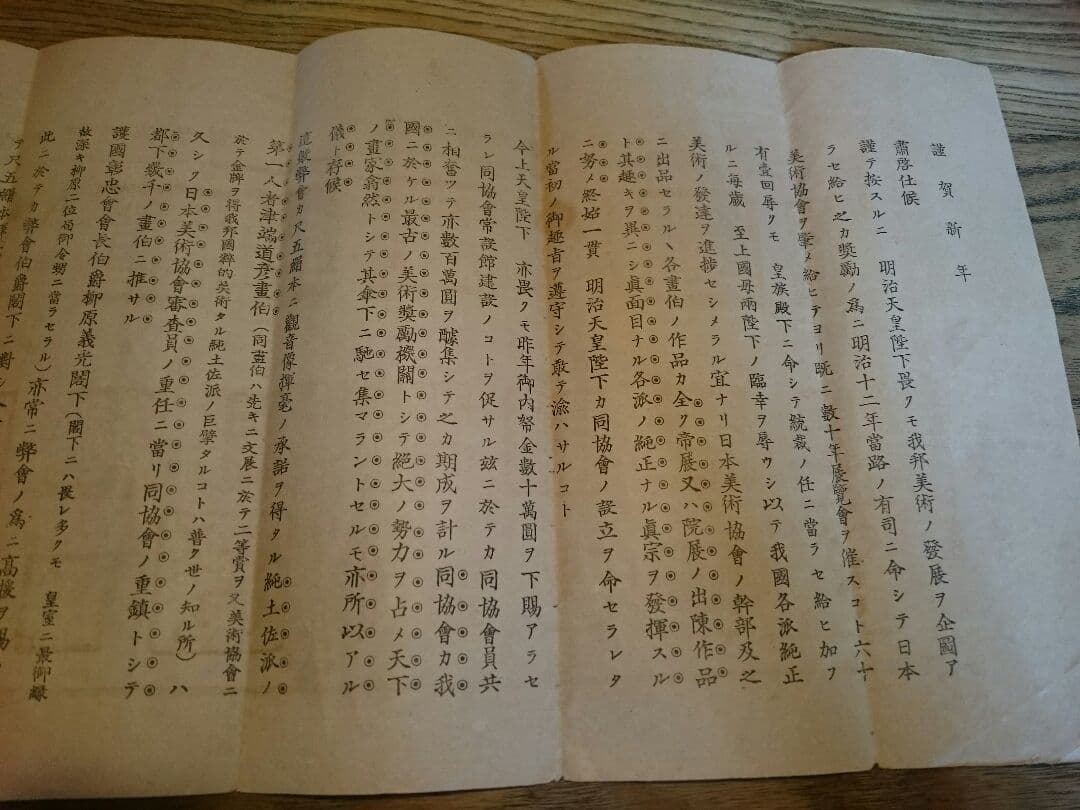 謹賀新年
肅啓仕候
謹テ按スルニ 明治天皇陛下畏クモ我邦美術ノ發展ヲ企圖ア
ラセ給ヒ之カ奬勵ノ爲ニ明治十二年當路ノ有司ニ命シテ日本
美術協會ヲ擧ケ給ヒテヨリ既ニ數十年展覽會ヲ催スコト六十
有壹回辱クモ 皇族殿下ニ命シテ統裁ノ任ニ當ラセ給ヒ加フ
ルニ毎歳 至上國母兩陛下ノ臨幸ヲ辱ウシ以テ我國各派純正
美術ノ發達ヲ進捗セシメラル宜ナリ日本美術協會ノ幹部及之
ニ出品セラルヽ各畫伯ノ作品カ全ク帝展又ハ院展ノ出陳作品
ト其趣キヲ異ニシ眞面目ナル各派ノ純正ナル眞宗ヲ發揮スル
ニ努メ終始一貫 明治天皇陛下カ同協會ノ設立ヲ命セラレタ
ル當初ノ御趣旨ヲ遵守シテ敢テ渝ハサルコト
今上天皇陛下 亦畏クモ昨年御內帑金數十萬圓ヲ下賜アラセ
ラレ同協會常設館建設ノコトヲ促サル玆ニ於テカ同協會員共
ニ相奮ツテ亦數百萬圓ヲ醵集シテ之カ期成ヲ計ル同協會カ我
國ニ於ケル最古ノ美術奬勵機關トシテ絕大ノ勢力ヲ占メ天下
ノ畫家翕然トシテ其傘下ニ馳セ集マラントセルモ亦所以アル
儀ト存候
這般弊會カ尺五絹本ニ觀音像揮毫ノ承諾ヲ得タル純土佐派ノ
第一人者津端道彦畫伯(同畫伯ハ先キニ文展ニ於テ二等賞ヲ又美術協會ニ
於テ金牌ヲ得我邦國粹的美術タル純土佐派ノ巨擘タルコトハ普ク世ノ知ル所)ハ
久シク日本美術協會審査員ノ重任ニ當リ同協會ノ重鎭トシテ
都下幾千ノ畫伯ニ推サル
護國彰忠會會長伯爵柳原義光閣下(閣下ニハ畏レ多クモ 皇室ニ最御緣
故深キ柳原二位局御令甥ニ當ラセラル)亦常ニ弊會ノ爲ニ高援ヲ賜
此ニ於テカ弊會伯爵閣下ニ對シ
テ尺五絹本